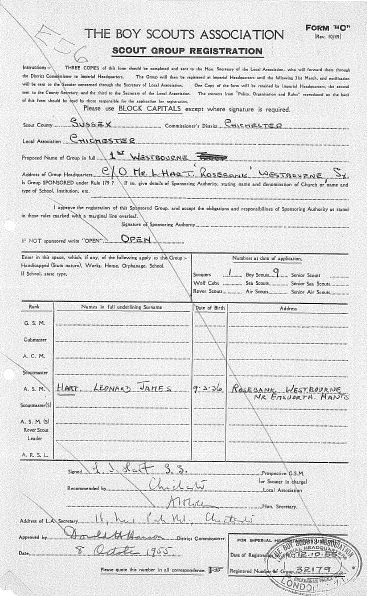 E56
THE BOY SCOUTS ASSOCIATION
FORM "C"
SCOUT GROUP REGISTRATION
Instructions— THREE COPIES of this form should be completed and sent to the Hon. Secretary of the Local Association, who will forward them through
the District Commissioner to Imperial Headquarters. The Group will then be registered at Imperial Headquarters until the following 31st March, and notification
will be sent to the Group concerned through the Secretary of the Local Association. One Copy of the form will be retained by Imperial Headquarters, the second
sent to the County Secretary and the third to the Secretary of the Local Association. The extracts from "Policy, Organisation and Rules" reproduced on the back
of this form should be read by those responsible for the application for registration.
Please use BLOCK CAPITALS except where signature is required.
Scout County SUSSEX Commissioner's District CHICHESTER
Local Association CHICHESTER
Proposed Name of Group in full 1ST WESTBOURNE
Address of Group Headquarters C/O MR. L. HART, ROSEBANK, WESTBOURNE, SX.
Is Group SPONSORED under Rule 179? If so, give details of Sponsoring Authority, stating name and denomination of Church or name and
type of School, Institution, etc.
I approve the registration of this Sponsored Group, and accept the obligations and responsibilities of Sponsoring Authority as stated
in those rules marked with a marginal line overleaf.
Signature of Sponsoring Authority
If NOT sponsored write "OPEN" OPEN
Enter in this space, which, if any, of the following apply to the Group:—
Handicapped (State nature), Works, Home, Orphanage, School.
If School, state type.
Numbers at date of application.
Scouters 1 Boy Scouts 9 Senior Scouts
Wolf Cubs Sea Scouts Senior Sea Scouts
Rover Scouts Air Scouts Senior Air Scouts
Rank Names in full underlining Surname Date of Birth Address
G. S. M.
Cubmaster
A. C. M.
Scoutmaster
A. S. M. HART LEONARD JAMES 9-3-36 ROSEBANK, WESTBOURNE
NR EMSWORTH. HANTS
Scoutmaster(s)
A. S. M (S)
Rover Scout
Leader
A. R. S. L.
Signed L. J. Hart Prospective G.S.M.
(or Scouter in charge)
Recommended by Chichester Local Association
Hon. Secretary.
Address of L.A. Secretary Chichester
Approved by District Commissioner
Date 8 October 1955
Please quote this number in all correspondence
FOR IMPERIAL HEADQUARTERS
Date of Registration 12.10.55
Registered Number of Group 32179
THE BOY SCOUTS ASSOCIATION
LONDON